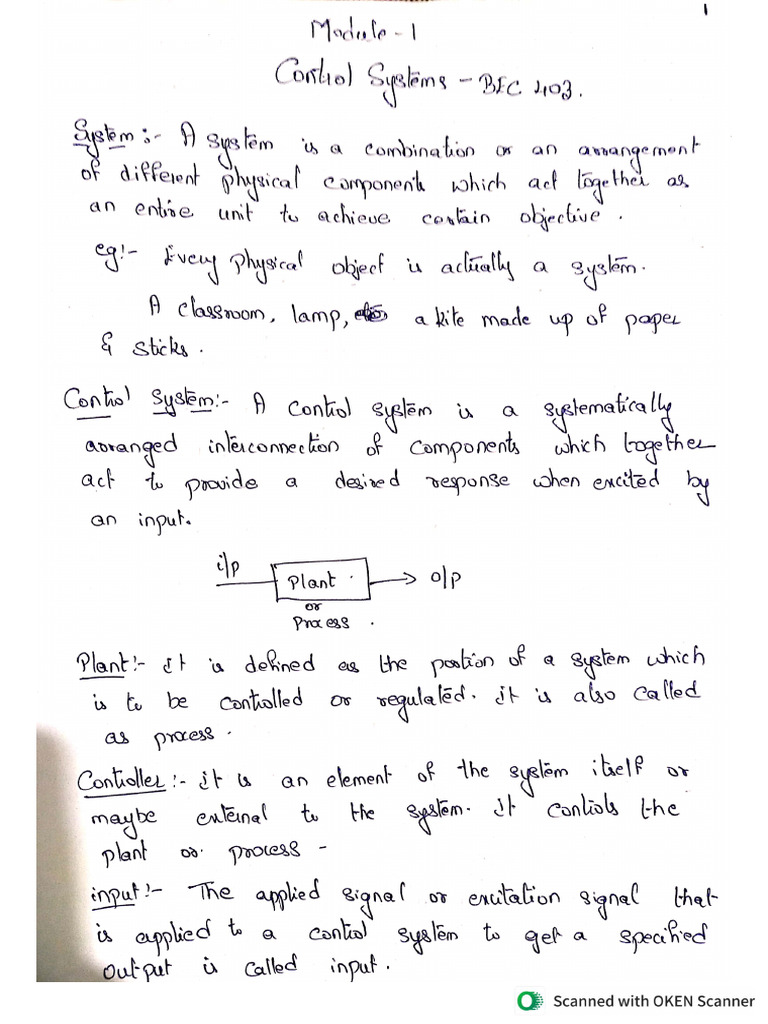 1
Module - 1
Control Systems - BEC 403.
System :- A system is a combination or an arrangement
of different physical components which act together as
an entire unit to achieve certain objective.
eg:- Every physical object is actually a system.
A classroom, lamp, a kite made up of paper
& sticks.
Control System:- A control system is a systematically
arranged interconnection of components which together
act to provide a desired response when excited by
an input.
i/p Plant. o/p
or
Process.
Plant:- it is defined as the portion of a system which
is to be controlled or regulated. it is also called
as process.
Controller:- it is an element of the system itself or
maybe external to the system. it controls the
plant or process -
input:- The applied signal or excitation signal that
is applied to a control system to get a specified
output is called input.
Scanned with OKEN Scanner